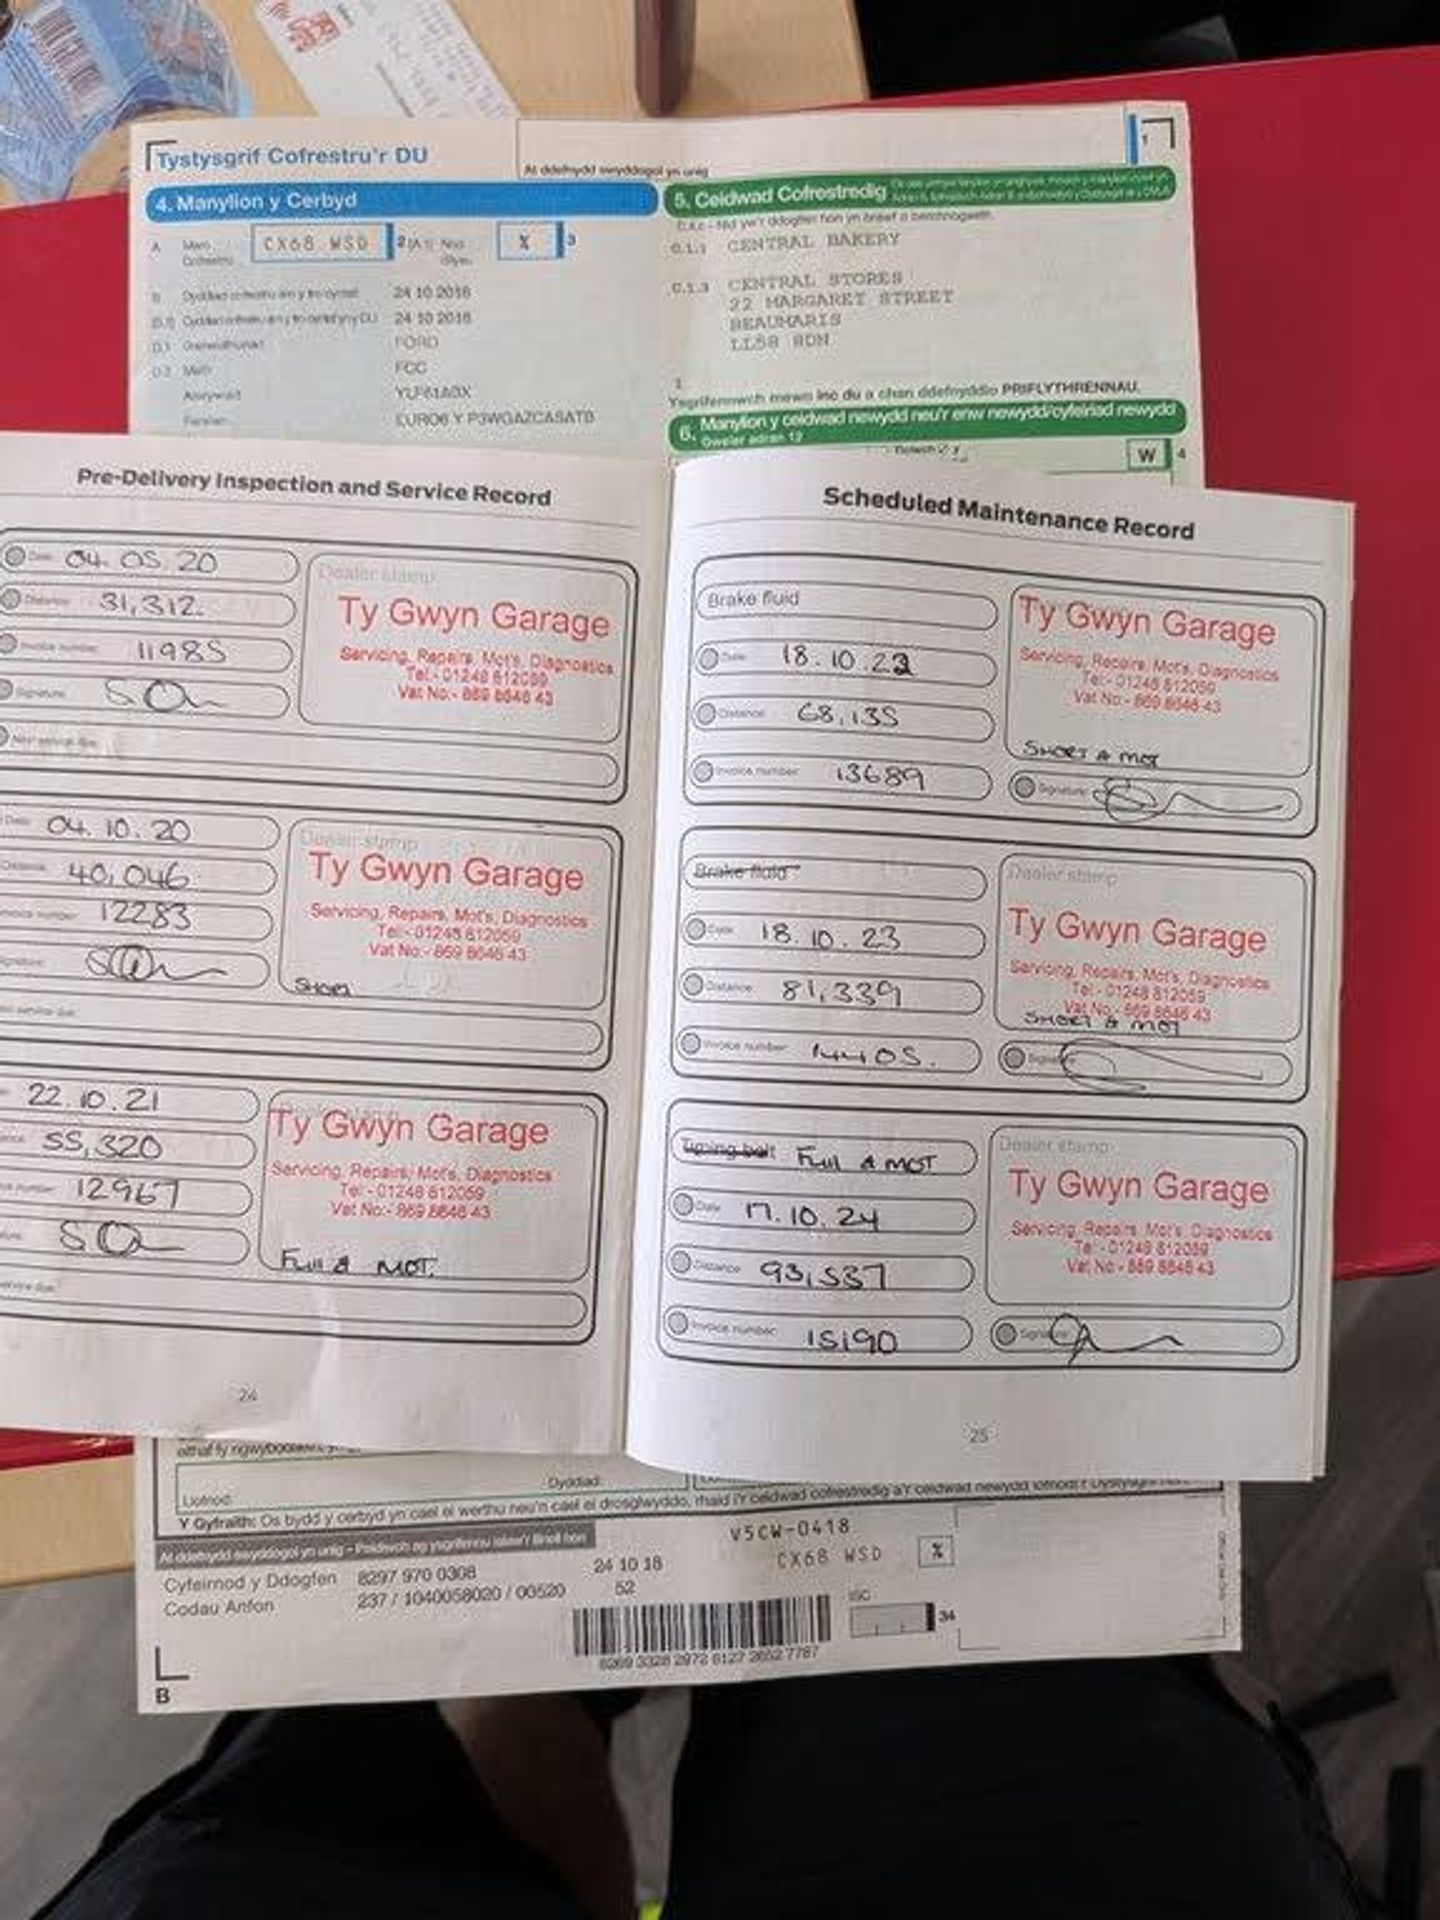 Tystysgrif Cofrestru'r DU
At ddefnydd swyddogol yn unig
1
4. Manylion y Cerbyd
A
CX68 WSD
2
3
B
24 10 2018
24 10 2018
D.1
FORD
D.2 Math
FCC
Amrywiad
EURO6 Y P3WGAZCASATB
5. Ceidwad Cofrestredig
C.1.1 CENTRAL BAKERY
C.1.3 CENTRAL STORES
22 MARGARET STREET
BEAUMARIS
Ysgrifennwch mewn inc du a chan ddefnyddio PRIFLYTHRENNAU.
6. Manylion y ceidwad newydd neu'r enw newydd/cyfeiriad newydd
Gweler adran 12
W 4
Pre-Delivery Inspection and Service Record
Date 04.05.20
Distance 31,312
Invoice number 11985
Signature
Next service due
Dealer stamp
Ty Gwyn Garage
Servicing, Repairs, Mot's, Diagnostics
Tel:- 01248 812059
Vat No:- 869 8646 43
Date 04.10.20
Distance 40,046
12283
Dealer stamp
Ty Gwyn Garage
Servicing, Repairs, Mot's, Diagnostics
Tel:- 01248 812059
Vat No:- 869 8646 43
SHORT
service due
22.10.21
55,320
number 12967
Ty Gwyn Garage
Servicing, Repairs, Mot's, Diagnostics
Tel:- 01248 812059
Vat No:- 869 8646 43
FULL & MOT.
service due
24
Scheduled Maintenance Record
Brake fluid
Date 18.10.22
Distance 68,135
Invoice number 13689
Ty Gwyn Garage
Servicing, Repairs, Mot's, Diagnostics
Tel:- 01248 812059
Vat No:- 869 8646 43
SHORT & MOT
Signature
Brake fluid
Date 18.10.23
Distance 81,339
Invoice number 14405.
Dealer stamp
Ty Gwyn Garage
Servicing, Repairs, Mot's, Diagnostics
Tel:- 01248 812059
Vat No:- 869 8646 43
SHORT & MOT
Signature
Timing belt FULL & MOT
Date 17.10.24
Distance 93,537
Invoice number 15190
Dealer stamp
Ty Gwyn Garage
Servicing, Repairs, Mot's, Diagnostics
Tel:- 01248 812059
Vat No:- 869 8646 43
Signature
25
Llofnod:
Dyddiad:
Y Gyfraith: Os bydd y cerbyd yn cael ei werthu neu'n cael ei drosglwyddo, rhaid i'r ceidwad cofrestredig a'r ceidwad newydd
Cyfeirnod y Ddogfen 8297 970 0308
Codau Anfon 237 / 1040058020 / 00520
24 10 18
52
V5CW-0418
CX68 WSD
34
B